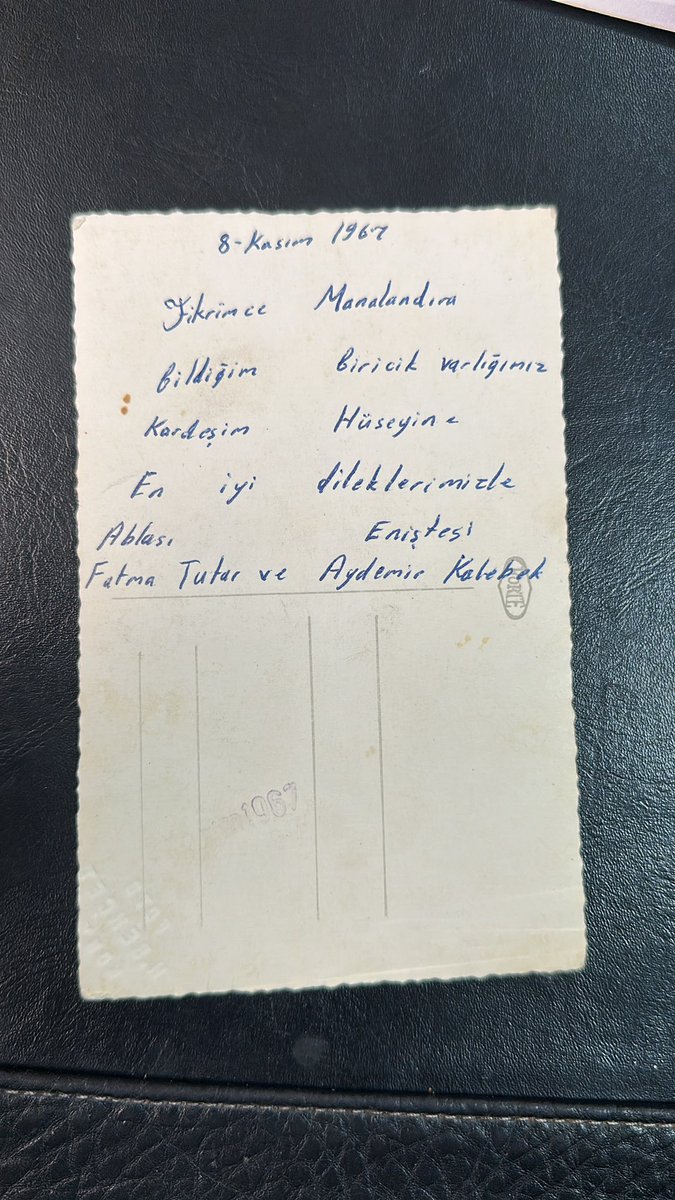 8-Kasım 1967
Fikrimce Manalandıra
bildiğim biricik varlığımız
Kardeşim Hüseyine
En iyi dileklerimizle
Ablası Eniştesi
Fatma Tutar ve Aydemir Kalebek
1967
FOTO